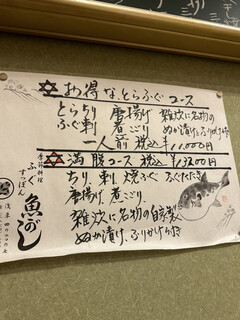 お得なとらふぐコース
とらちり 唐揚げ 雑炊に名物の
ふぐ刺 煮こごり ぬか漬けとふりかけ付
一人前 税込 ¥11,000円
満腹コース 税込 ¥13,200円
ちり 刺 焼ふぐ ふぐたたき
唐揚げ、煮こごり
雑炊に名物の自家製
ぬか漬け、ふりかけ付き
季節料理
ふぐ
すっぽん
魚がし